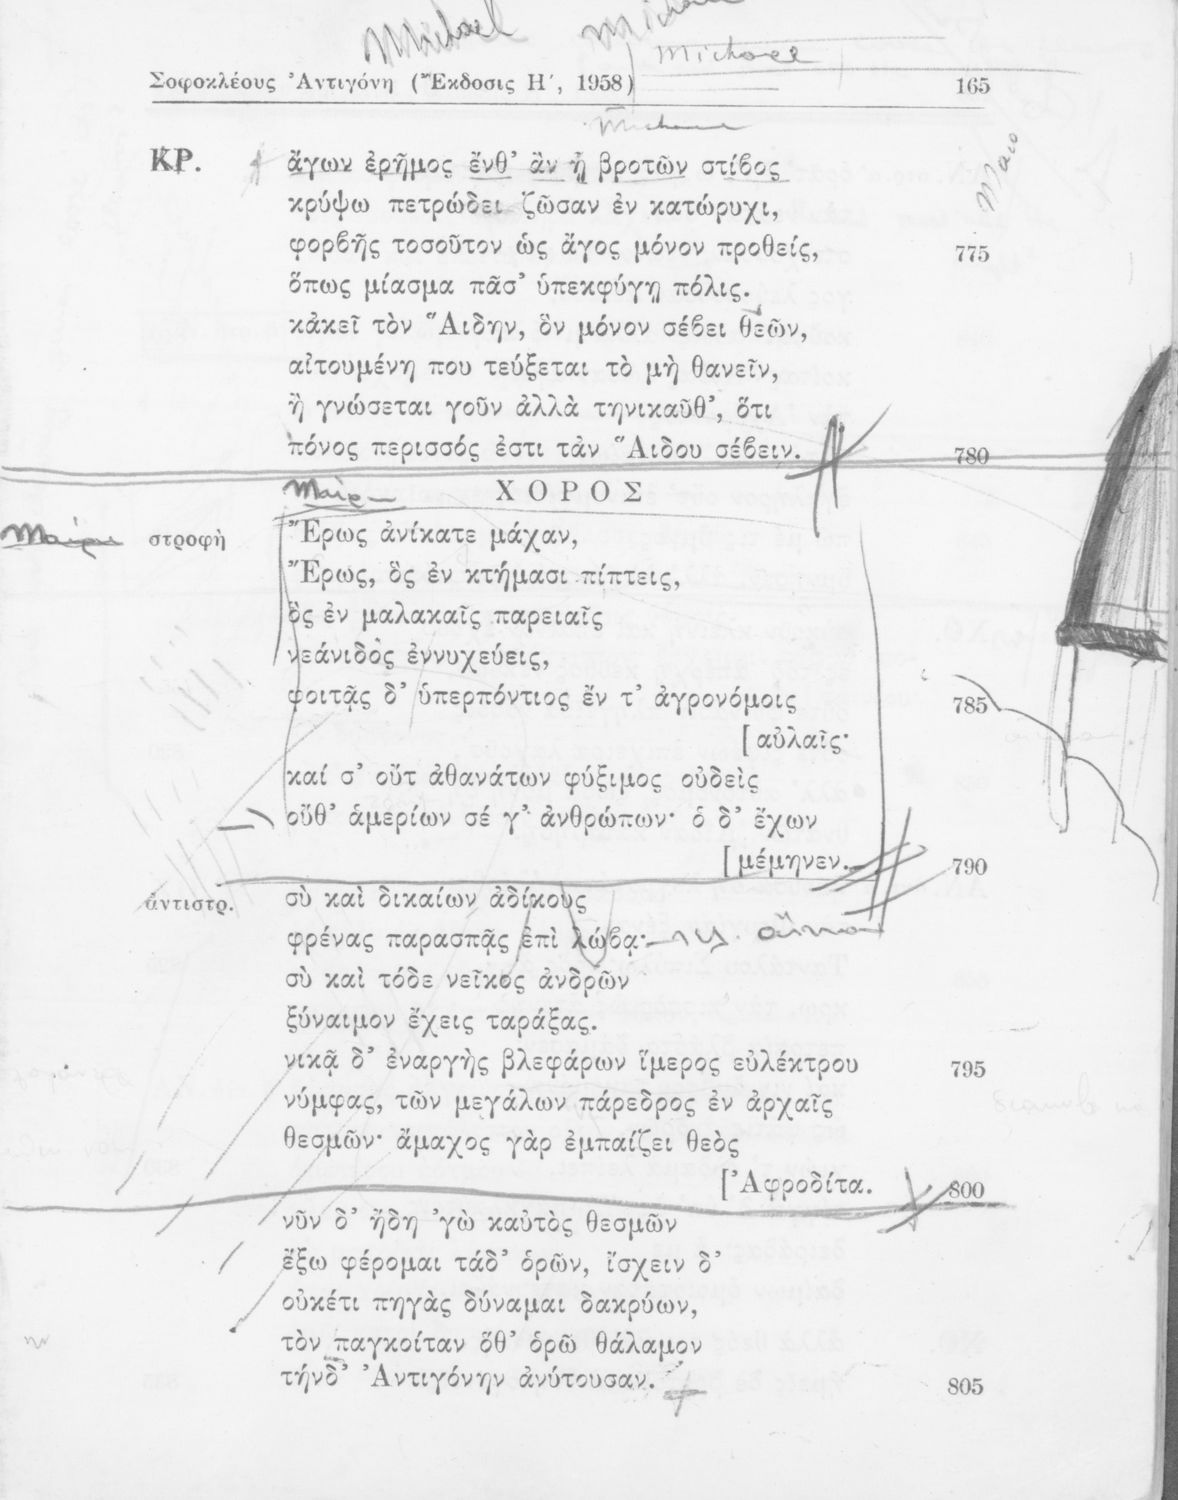 Michael
Michael
Michael
Σοφοκλέους Ἀντιγόνη (Ἔκδοσις Η΄, 1958) 165
ΚΡ. ἄγων ἐρῆμος ἔνθ' ἂν ᾖ βροτῶν στίβος
κρύψω πετρώδει ζῶσαν ἐν κατώρυχι,
φορβῆς τοσοῦτον ὡς ἄγος μόνον προθείς, 775
ὅπως μίασμα πᾶσ' ὑπεκφύγῃ πόλις.
κἀκεῖ τὸν Ἅιδην, ὃν μόνον σέβει θεῶν,
αἰτουμένη που τεύξεται τὸ μὴ θανεῖν,
ἢ γνώσεται γοῦν ἀλλὰ τηνικαῦθ', ὅτι
πόνος περισσός ἐστι τἀν Ἅιδου σέβειν. 780
ΧΟΡΟΣ
στροφὴ Ἔρως ἀνίκατε μάχαν,
Ἔρως, ὃς ἐν κτήμασι πίπτεις,
ὃς ἐν μαλακαῖς παρειαῖς
νεάνιδος ἐννυχεύεις,
φοιτᾷς δ' ὑπερπόντιος ἔν τ' ἀγρονόμοις 785
[αὐλαῖς·
καί σ' οὔτ ἀθανάτων φύξιμος οὐδεὶς
οὔθ' ἁμερίων σέ γ' ἀνθρώπων· ὁ δ' ἔχων
[μέμηνεν. 790
ἀντιστρ. σὺ καὶ δικαίων ἀδίκους
φρένας παρασπᾷς ἐπὶ λώβᾳ·
σὺ καὶ τόδε νεῖκος ἀνδρῶν
ξύναιμον ἔχεις ταράξας.
νικᾷ δ' ἐναργὴς βλεφάρων ἵμερος εὐλέκτρου 795
νύμφας, τῶν μεγάλων πάρεδρος ἐν ἀρχαῖς
θεσμῶν· ἄμαχος γὰρ ἐμπαίζει θεὸς
[Ἀφροδίτα. 800
νῦν δ' ἤδη 'γὼ καὐτὸς θεσμῶν
ἔξω φέρομαι τάδ' ὁρῶν, ἴσχειν δ'
οὐκέτι πηγὰς δύναμαι δακρύων,
τὸν παγκοίταν ὅθ' ὁρῶ θάλαμον
τήνδ' Ἀντιγόνην ἀνύτουσαν. 805